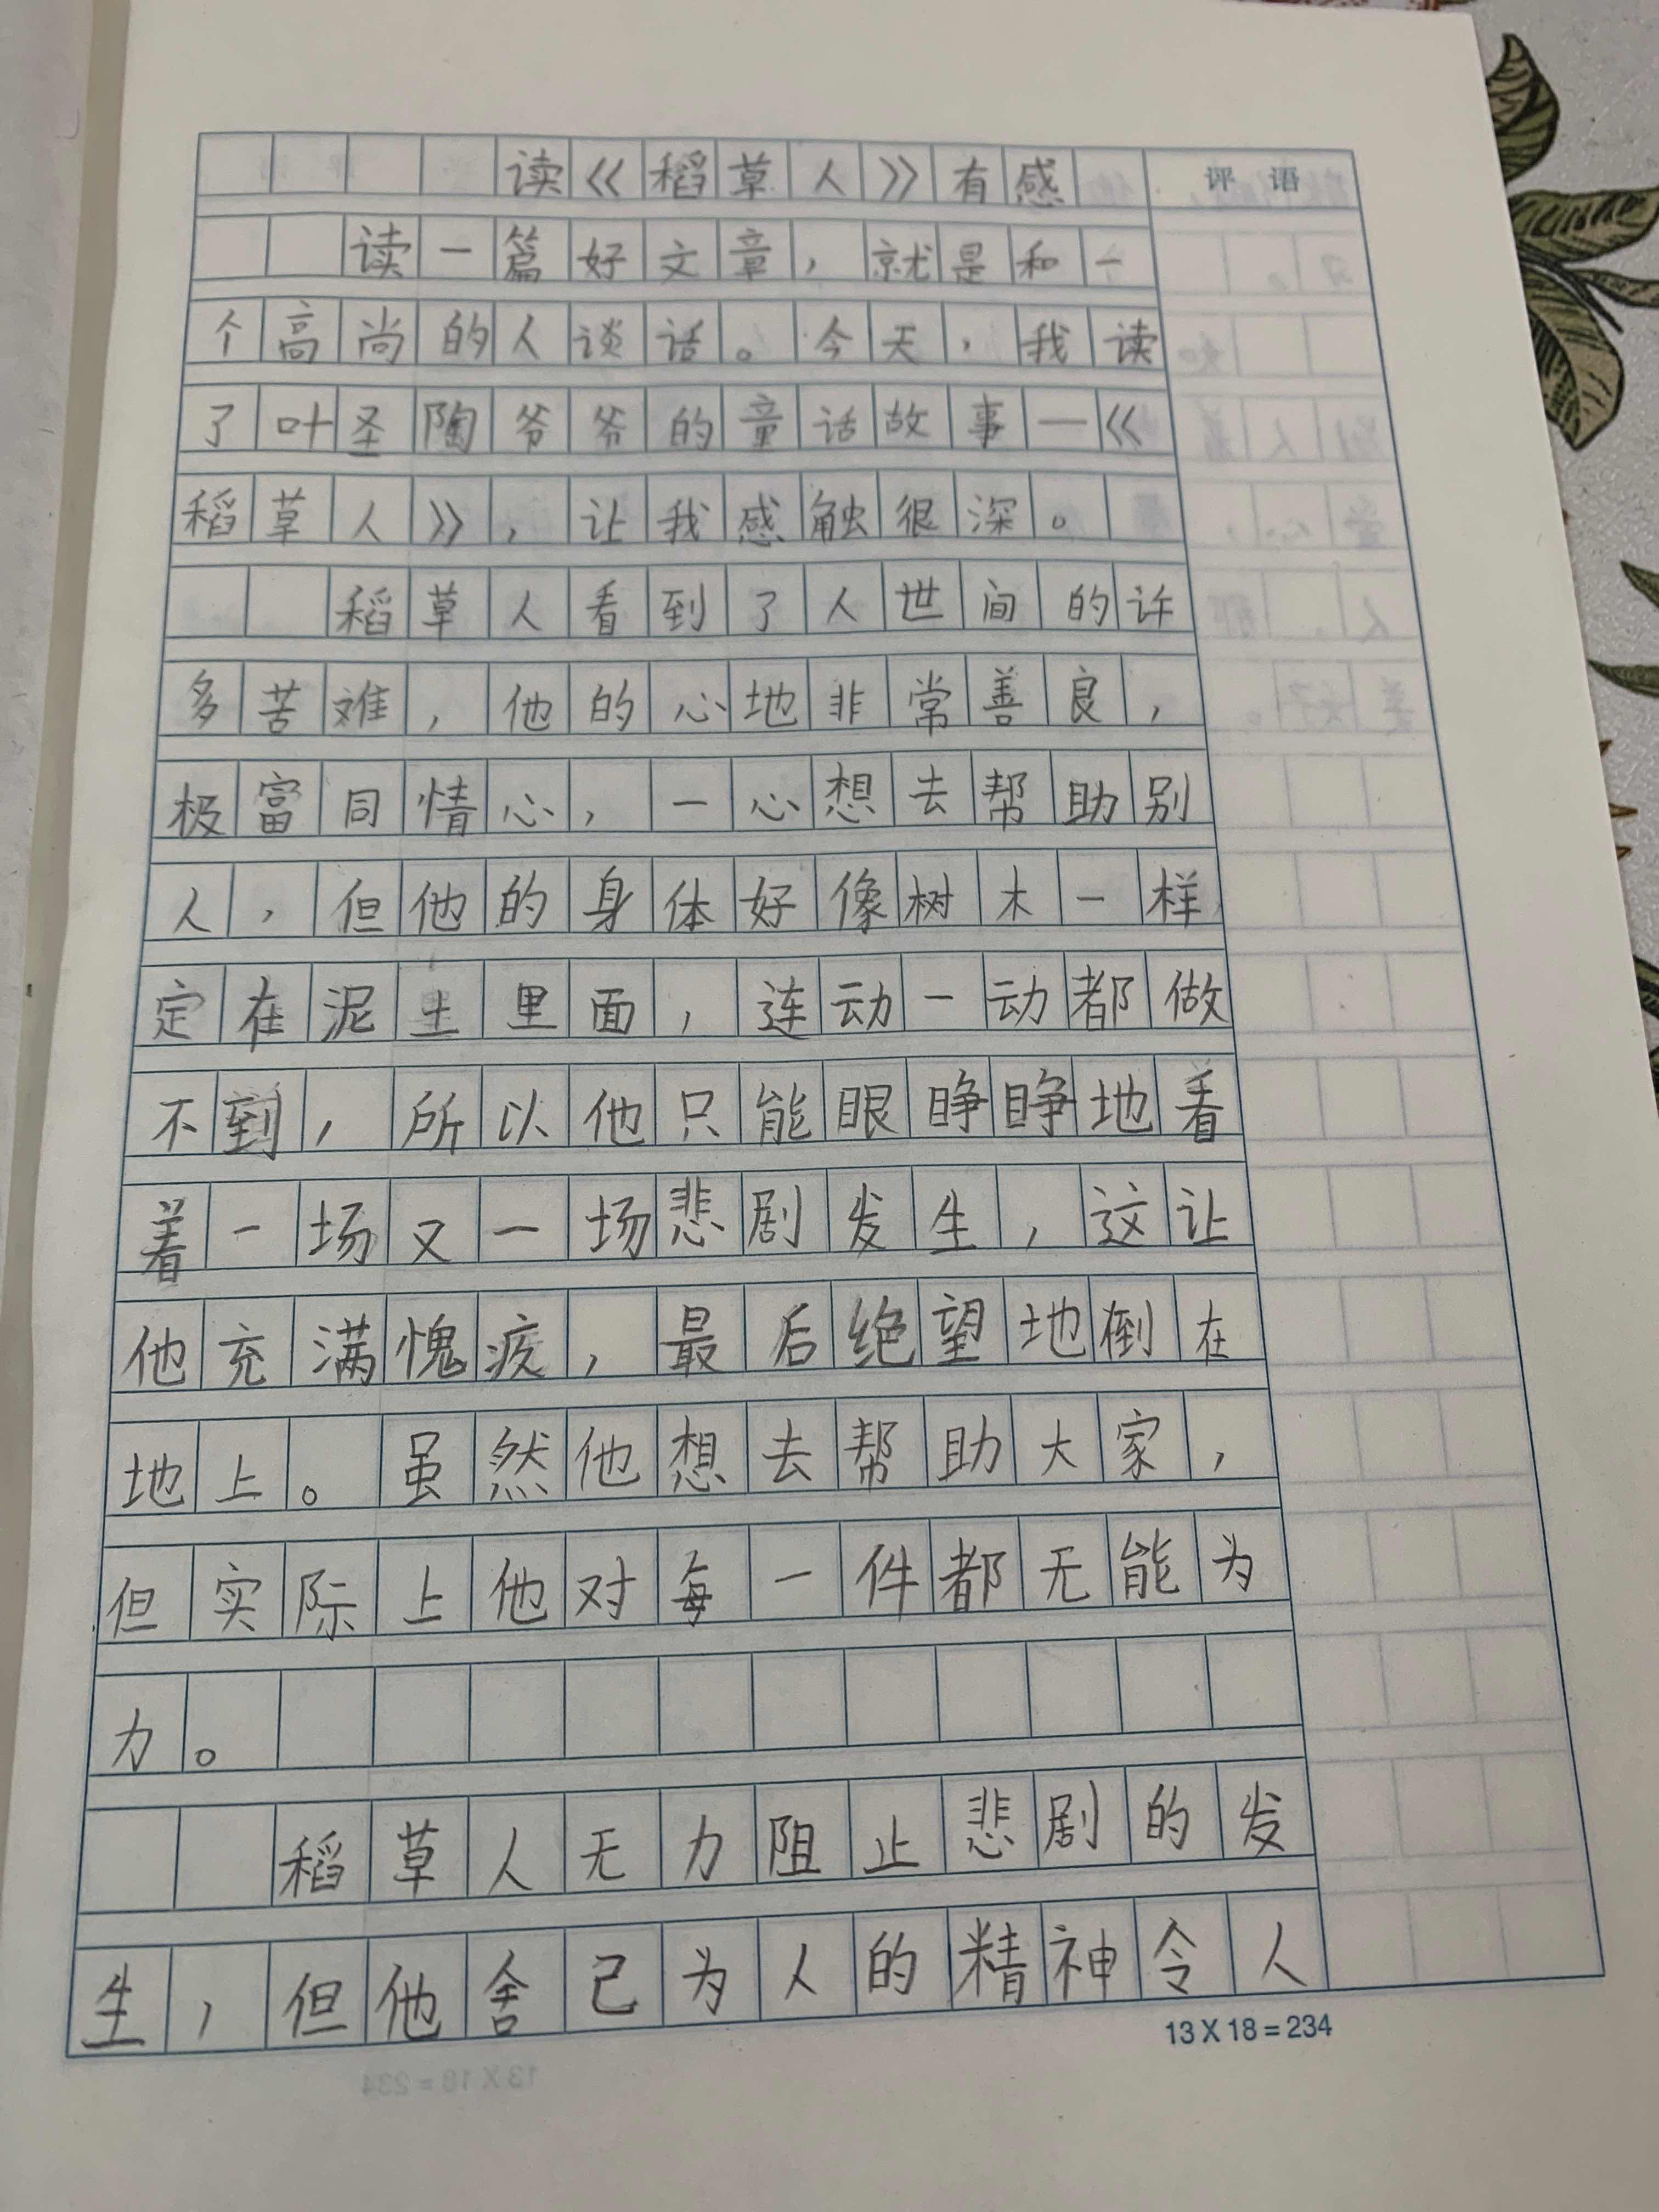 读《稻草人》有感
评语
读一篇好文章，就是和一
个高尚的人谈话。今天，我读
了叶圣陶爷爷的童话故事—《
稻草人》，让我感触很深。
稻草人看到了人世间的许
多苦难，他的心地非常善良，
极富同情心，一心想去帮助别
人，但他的身体好像树木一样
定在泥土里面，连动一动都做
不到，所以他只能眼睁睁地看
着一场又一场悲剧发生，这让
他充满愧疚，最后绝望地倒在
地上。虽然他想去帮助大家，
但实际上他对每一件都无能为
力。
稻草人无力阻止悲剧的发
生，但他舍己为人的精神令人
13X18=234